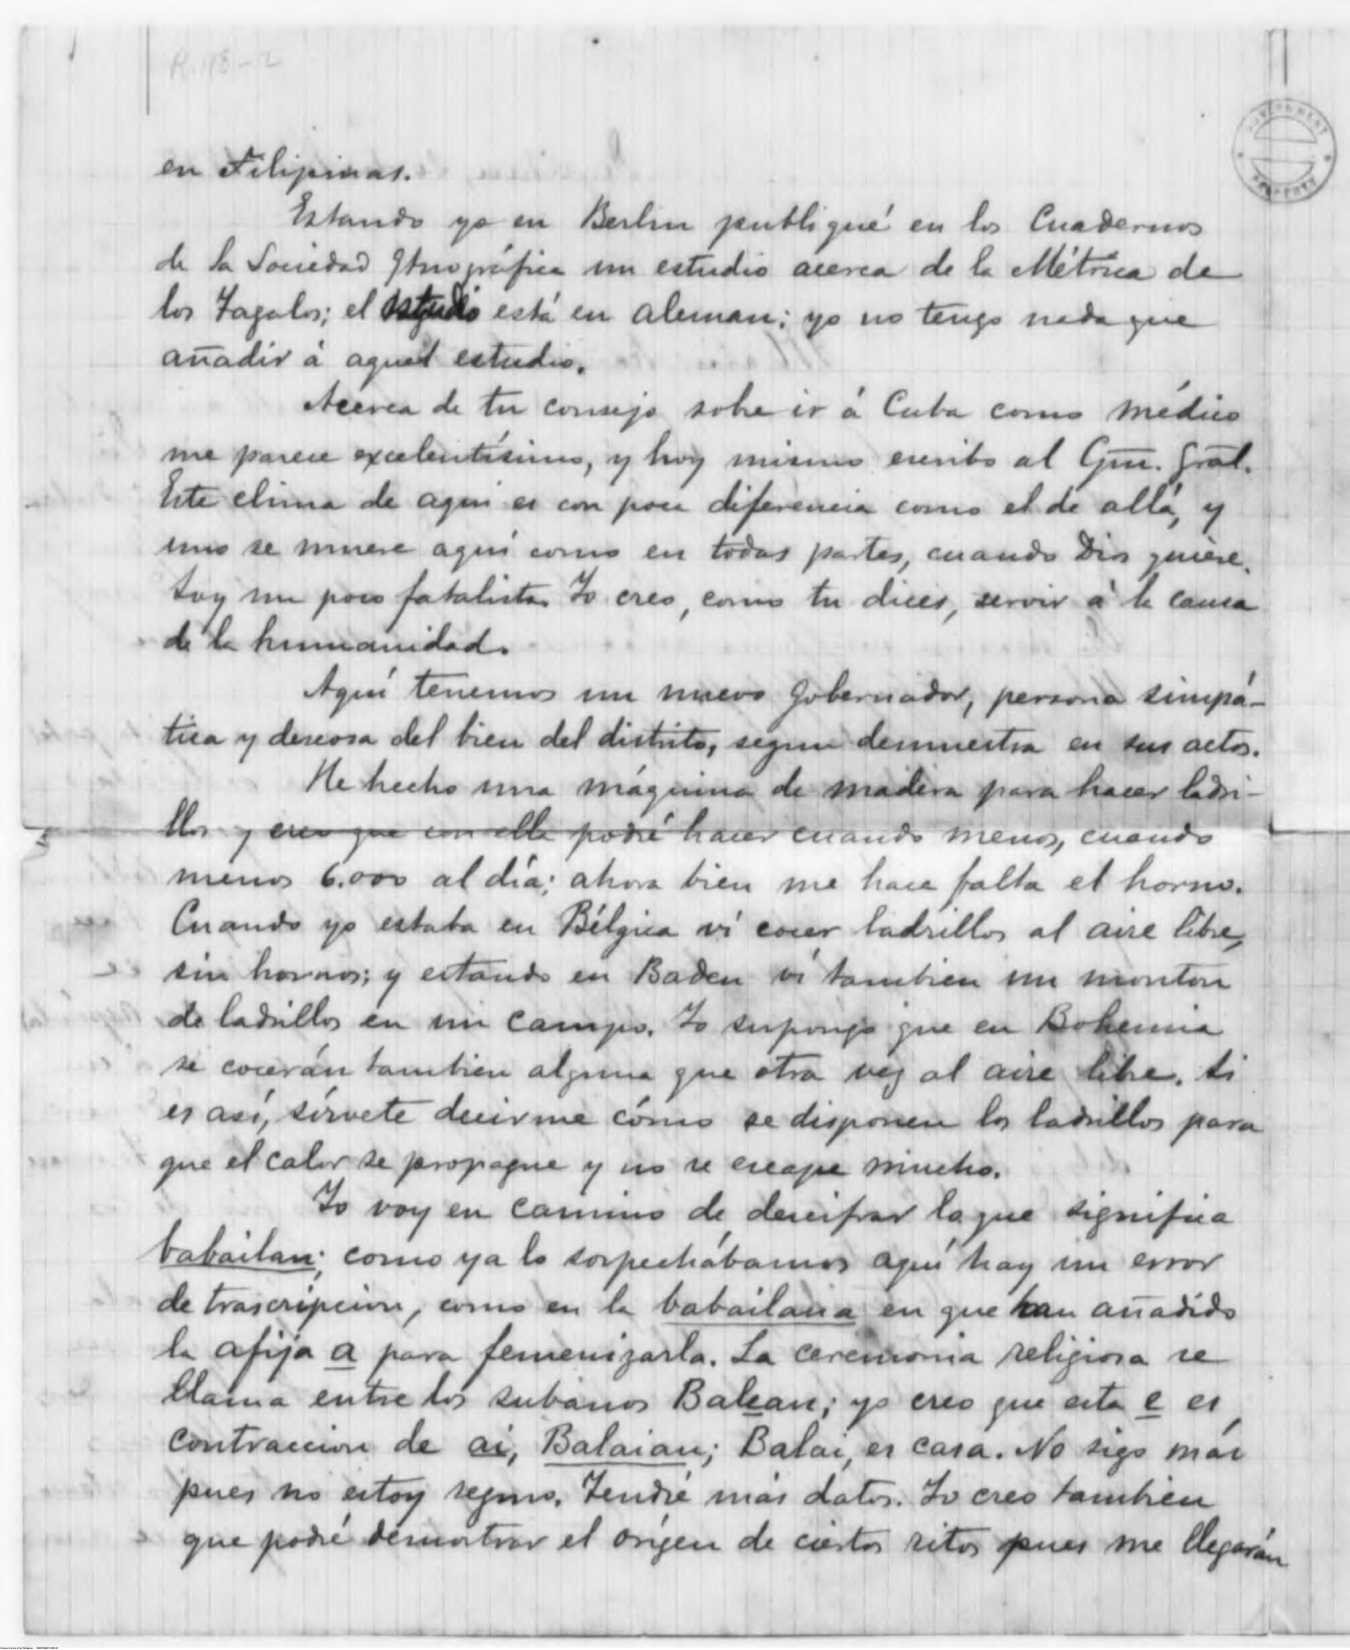 R.113-2
en Filipinas.
Estando yo en Berlin publiqué en los Cuadernos
de la Sociedad Etnográfica un estudio acerca de la Métrica de
los Tagalos; el estudio está en aleman; yo no tengo nada que
añadir á aquel estudio.
Acerca de tu consejo sobre ir á Cuba como médico
me parece excelentísimo, y hoy mismo escribo al Gm. Gral.
Este clima de aqui es con poca diferencia como el de allá, y
uno se muere aquí como en todas partes, cuando Dios quiere.
Soy un poco fatalista. Yo creo, como tu dices, servir á la causa
de la humanidad.
Aquí tenemos un nuevo Gobernador, persona simpá-
tica y deseosa del bien del distrito, segun demuestra en sus actos.
He hecho una máquina de madera para hacer ladri-
llos y creo que con ella podré hacer cuando menos, cuando
menos 6.000 al día; ahora bien me hace falta el horno.
Cuando yo estaba en Bélgica ví cocer ladrillos al aire libre,
sin hornos; y estando en Baden ví tambien un monton
de ladrillos en un campo. Yo supongo que en Bohemia
se cocerán tambien alguna que otra vez al aire libre. Si
es así, sírvete decirme cómo se disponen los ladrillos para
que el calor se propague y no se escape mucho.
Yo voy en camino de descifrar lo que significa
babailan; como ya lo sospechábamos aquí hay un error
de trascripcion, como en la babailana en que han añadido
la afija a para femenizarla. La ceremonia religiosa se
llama entre los subanos Balean; yo creo que esta e es
contraccion de ai, Balaian; Balai, es casa. No sigo más
pues no estoy seguro. Tendré más datos. Yo creo tambien
que podré demostrar el orígen de ciertos ritos pues me llegarán
GOVERNMENT
PROPERTY